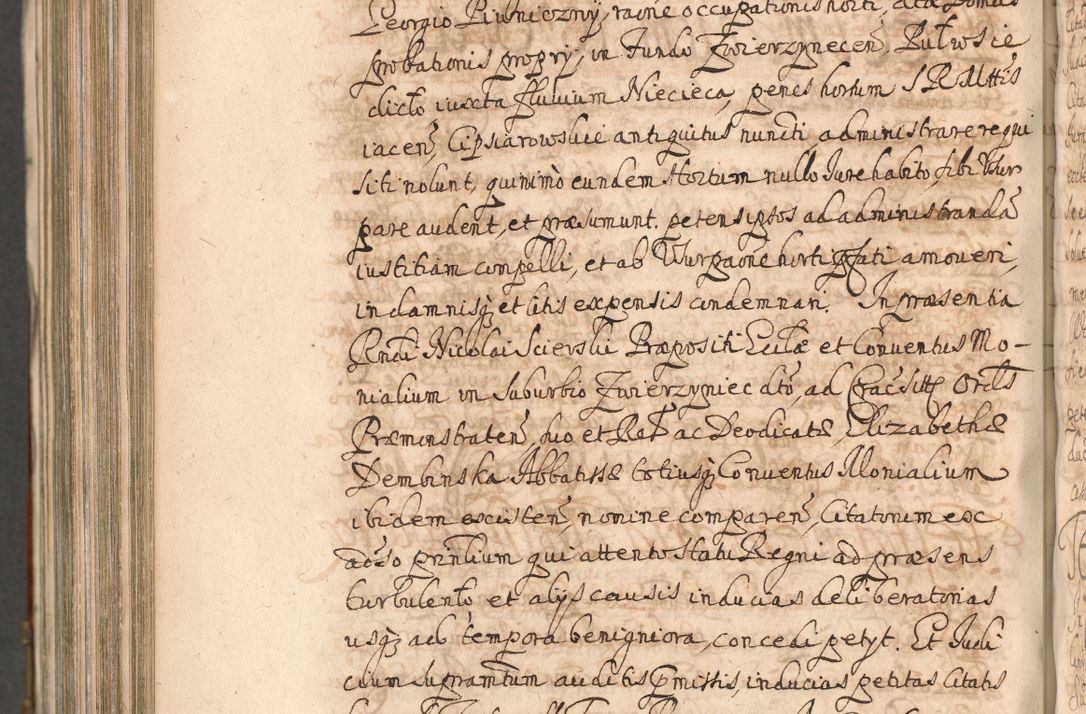 Georgio Piwniczny, raõne occupationis horti, ac Domus
probationis propry, in Fundo Zwierzynecen, Pulwsie
dicto iuxta fluvium Niecieca, penes hortum S R Mttis
iacen, Cipsiarowskie antiquitus nuncti administrare requi
siti nolunt, quinimò eundem Hortum nullo Jure habito, sibi Vsur
pare audent, et præsumunt. peten ipsos ad administrandã
iustitiam compelli, et ab Vsurpaõne horti pfati amoveri,
in damnisq3 et litis expensis condemnari. In præsentia
Rendi Nicolai Scierski Præpositi Ecclæ et Conventus Mo-
nialium in Suburbio Zwierzyniec dto, ad Crac sitt Ordis
Præmonstraten, suo et Rel ac Deodicatæ Elizabethæ
Dembinska Abbatissæ totiusq3 Conventus Monialium
ibidem existen, nomine comparen, Citatorum ex
adso prinlium qui attento statu Regni ad præsens
turbulento et alys causis inducias deliberatorias
usq3 ad tempora benigniora, concedi petyt. Et Judi
cium supramtum auditis pmissis, inducias petitas Citatis